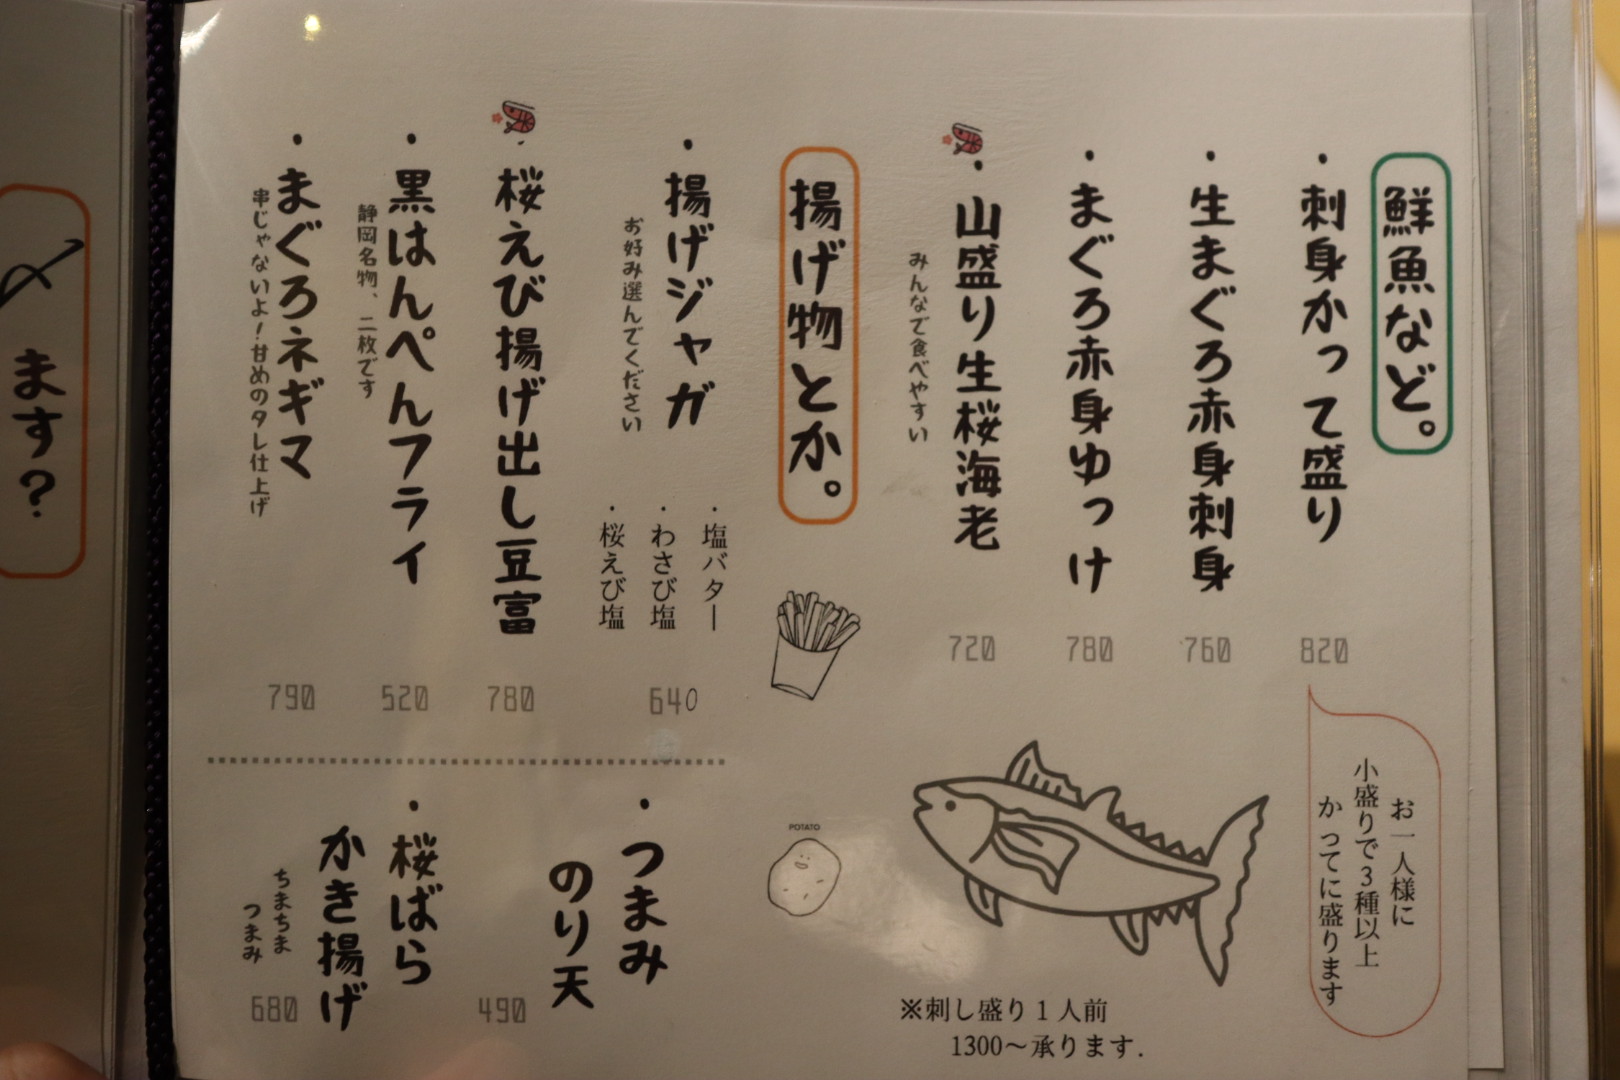 鮮魚など。
・刺身かって盛り
820
お一人様に
小盛りで3種以上
かってに盛ります
・生まぐろ赤身刺身
760
・まぐろ赤身ゆっけ
780
・山盛り生桜海老
みんなで食べやすい
720
※刺し盛り1人前
1300〜承ります.
揚げ物とか。
POTATO
・揚げジャガ
お好み選んでください
・塩バター
・わさび塩
・桜えび塩
640
・桜えび揚げ出し豆富
780
・黒はんぺんフライ
静岡名物、二枚です
520
・まぐろネギマ
串じゃないよ!甘めのタレ仕上げ
790
・つまみ
のり天
490
・桜ばら
かき揚げ
ちまちま
つまみ
680
〆ます?